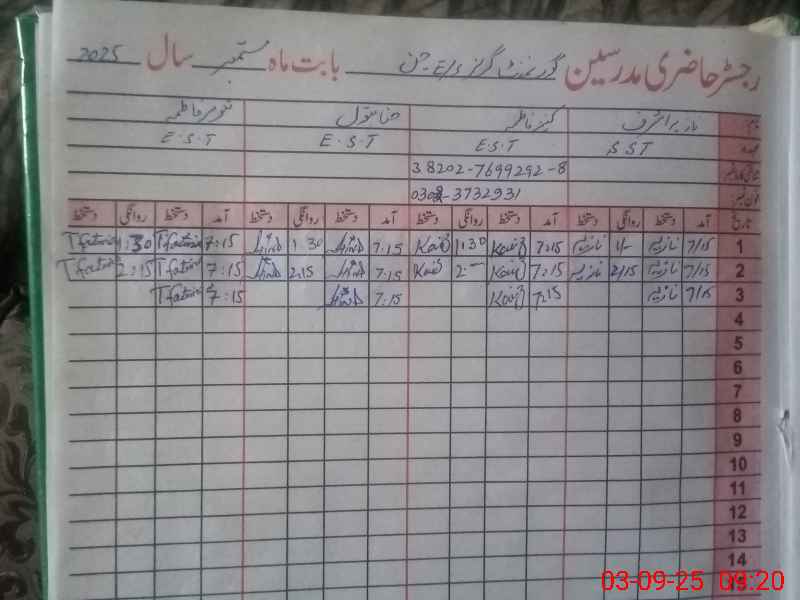 رجسٹر حاضری مدرسین گورنمنٹ گرلز E/S جن بابت ماہ ستمبر سال 2025
نام: کنیز فاطمہ
عہدہ S S T E.S.T E.S.T E.S.T
شناختی کارڈ نمبر: 38202-7699292-8
فون نمبر: 3732931
تاریخ آمد دستخط روانگی دستخط آمد دستخط روانگی دستخط آمد دستخط روانگی دستخط آمد دستخط روانگی دستخط
1 7/15 نازیہ 1/- نازیہ 7:15 Kaniz 1:30 Kaniz 7:15 1 30 7:15 Tfatima 1:30 Tfatima
2 7/15 نازیہ 2/15 نازیہ 7:15 Kaniz 2:- Kaniz 7:15 2:15 7:15 Tfatima 2:15 Tfatima
3 7/15 نازیہ 7:15 Kaniz 7:15 7:15 Tfatima
4
5
6
7
8
9
10
11
12
13
14
15
03-09-25 09:20